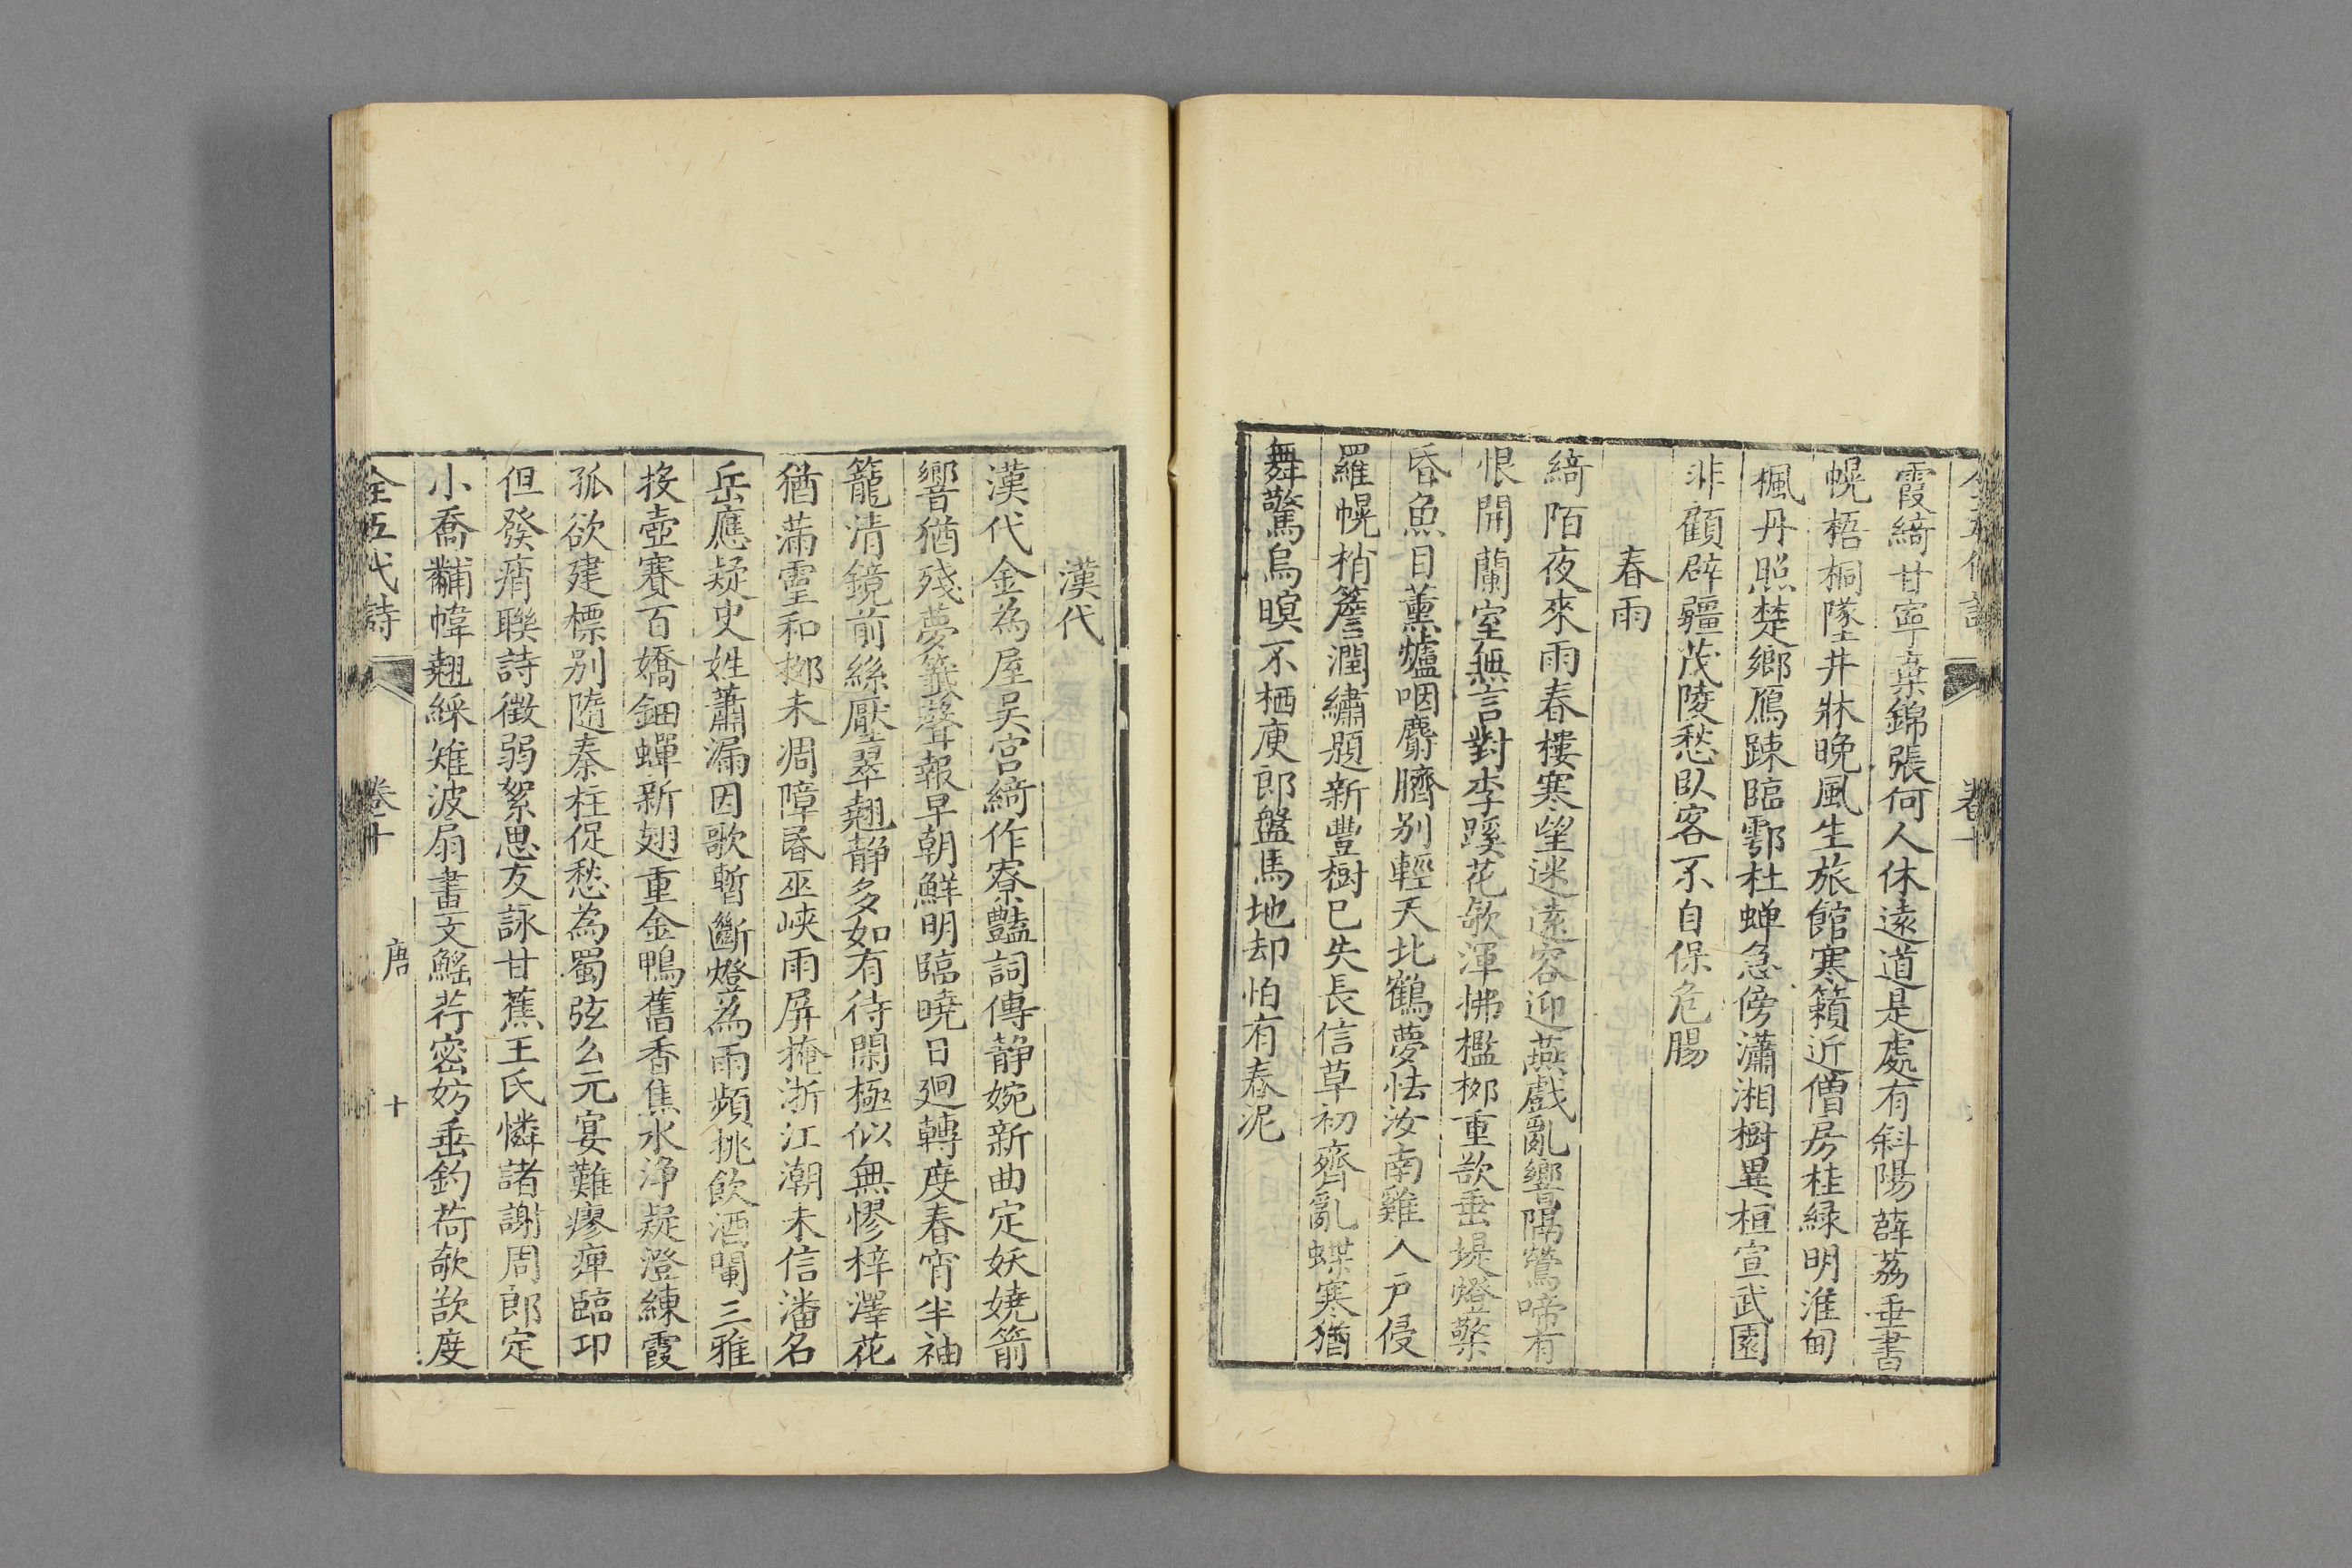 全五代詩 卷十
霞綺甘寧棄錦張何人休遠道是處有斜陽薜荔垂書
幌梧桐墜井牀晚風生旅館寒籟近僧房桂緑明淮甸
楓丹照楚鄉鴈踈臨鄠杜蟬急傍瀟湘樹異桓宣武園
非顧辟疆茂陵愁臥客不自保危腸
春雨
綺陌夜來雨春樓寒望迷遠容迎燕戲亂響隔鶯啼有
恨開蘭室無言對李蹊花欹渾拂檻栁重欲垂堤燈檠
昏魚目薰爐咽麝臍別輕天北鶴夢怯汝南雞入戶侵
羅幌梢簷潤繡題新豐樹已失長信草初齊亂蝶寒猶
舞驚烏暝不栖庾郎盤馬地却怕有春泥
漢代
漢代金為屋吴宫綺作寮豔詞傳静婉新曲定妖嬈箭
響猶殘夢籤聲報早朝鮮明臨曉日廻轉度春宵半袖
籠清鏡前絲壓翠翹静多如有待閑極似無憀梓澤花
猶滿靈和栁未凋障昬巫峽雨屏掩浙江潮未信潘名
岳應疑史姓蕭漏因歌暫斷燈為雨頻挑飲酒闌三雅
投壺賽百嬌鈿蟬新翅重金鴨舊香焦水浄疑澄練霞
孤欲建標别隨秦柱促愁為蜀弦么元宴難瘳痺臨卭
但發痟聯詩徵弱絮思友詠甘蕉王氏憐諸謝周郎定
小喬黼幃翹綵雉波扇畫文鰩荇密妨垂釣荷欹欲度
全五代詩 卷十 唐 十